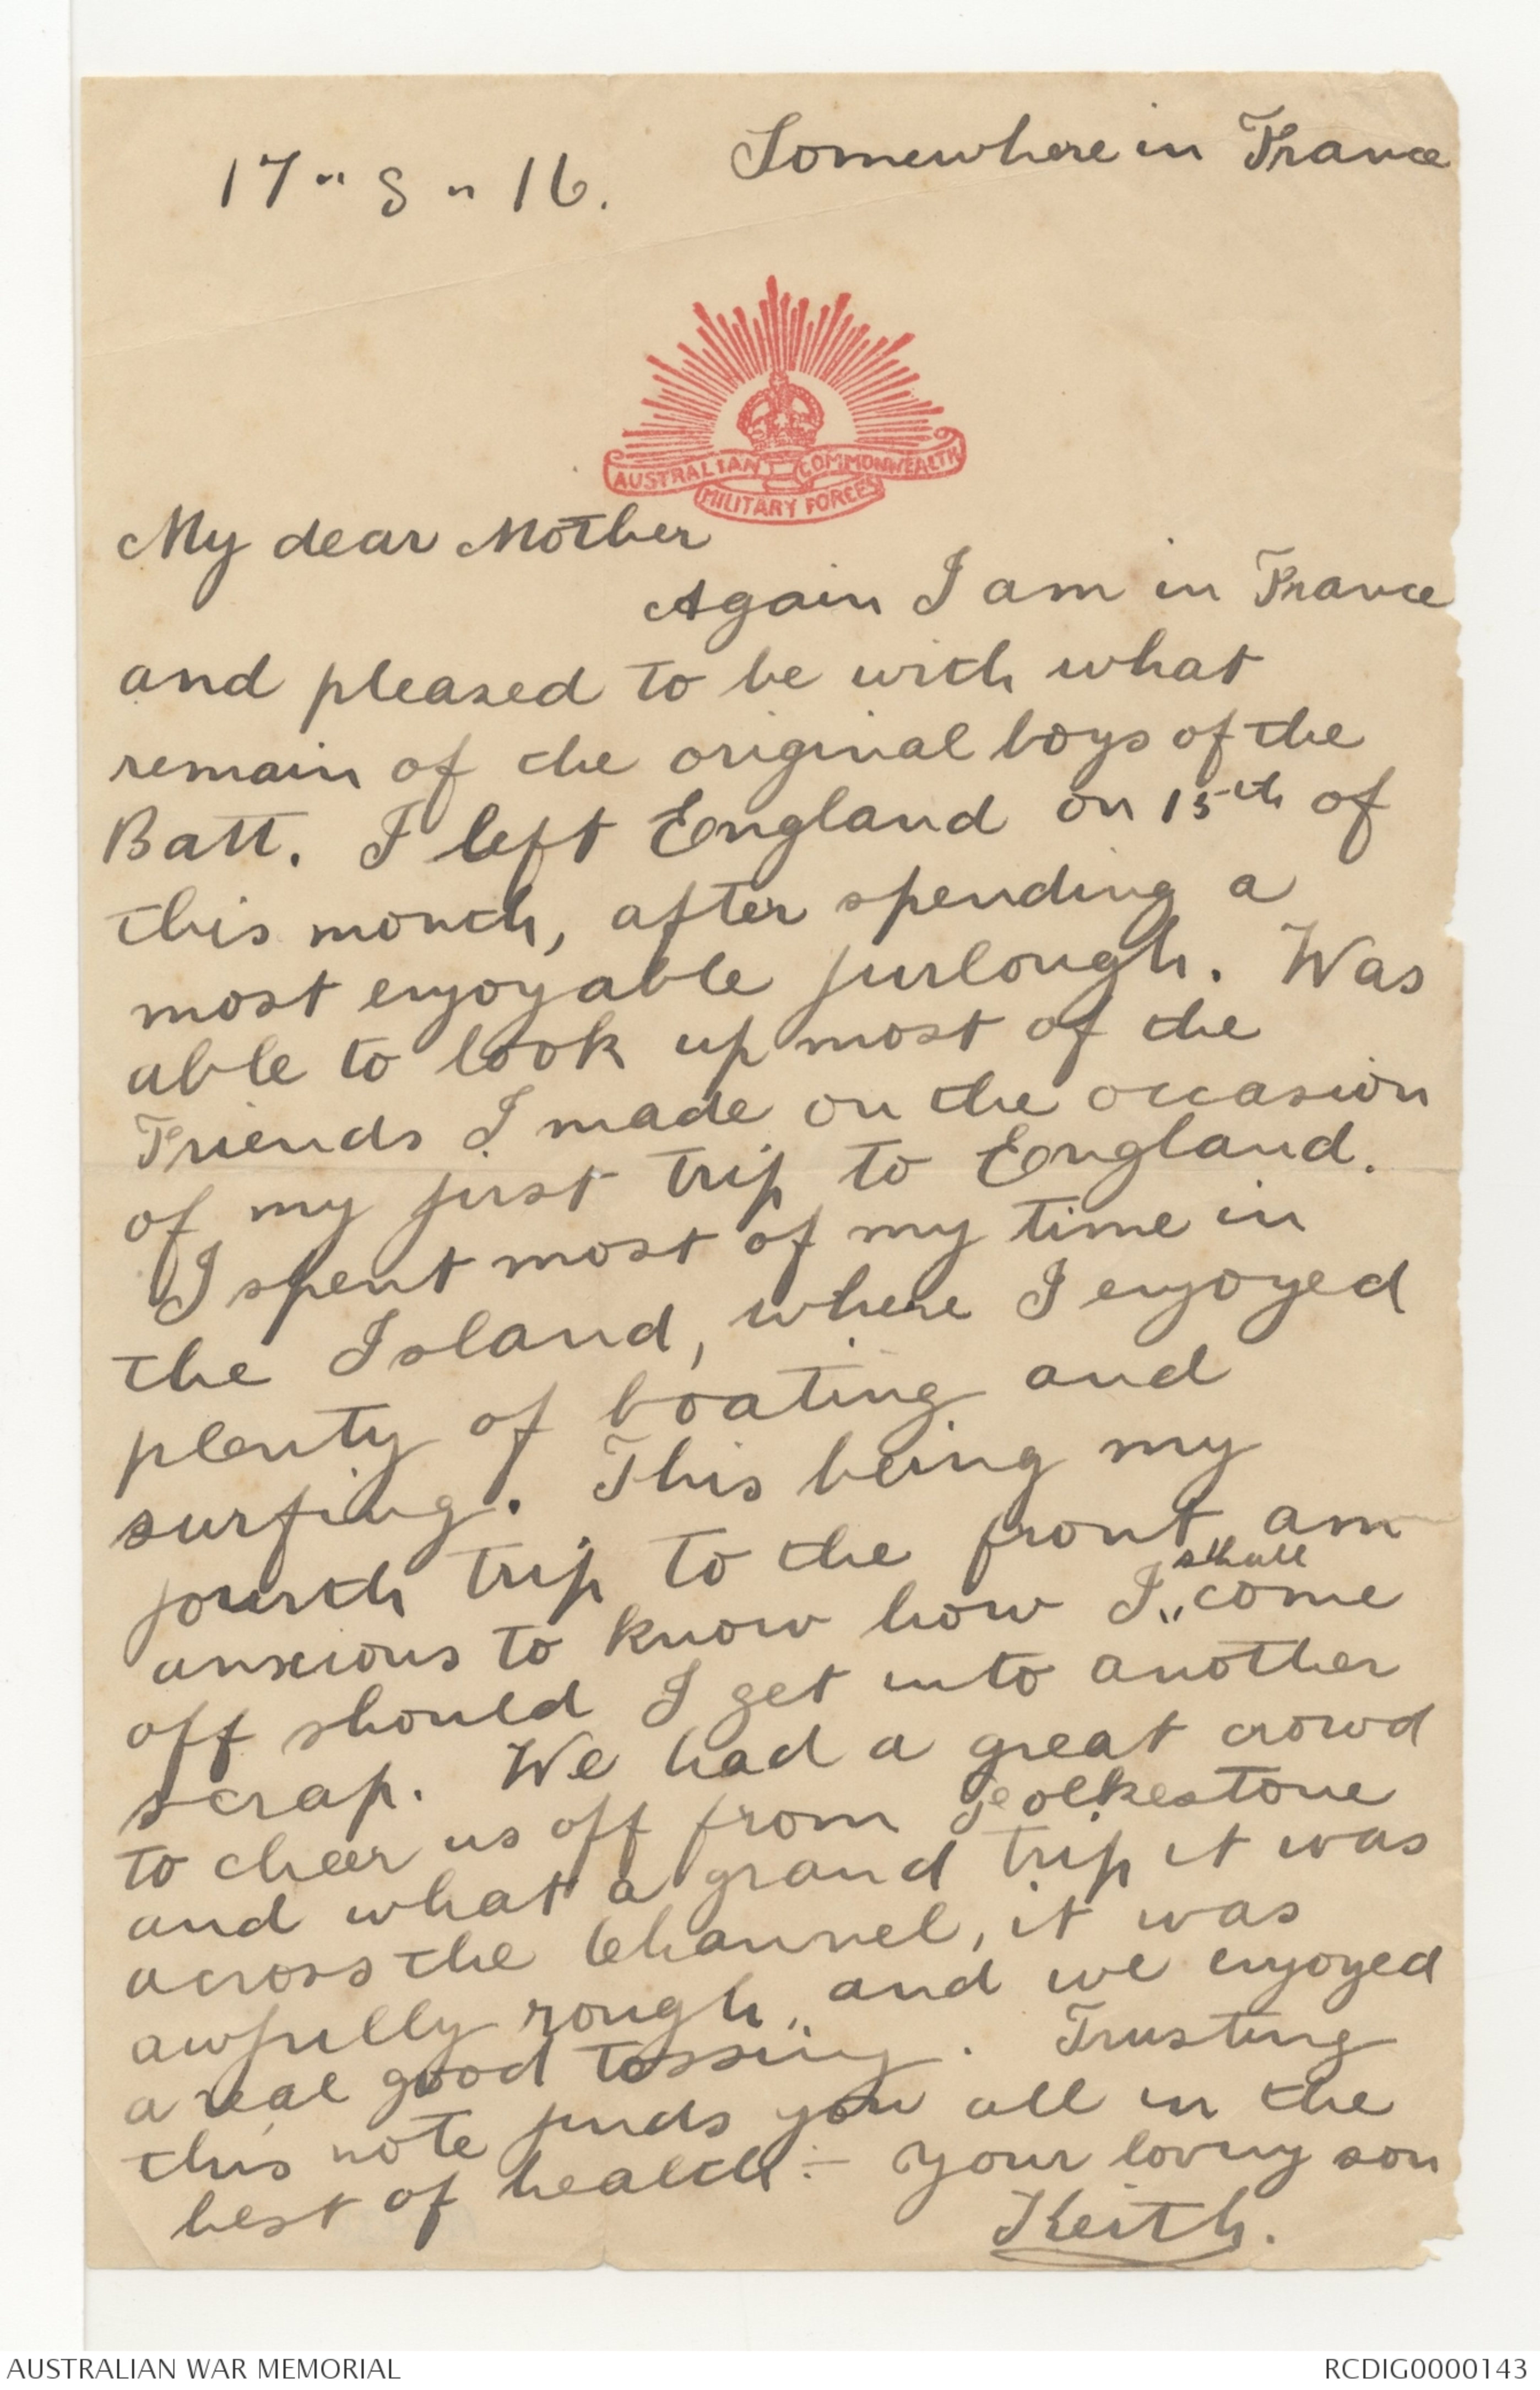 Somewhere in France
17 " 8 " 16.
AUSTRALIAN COMMONWEALTH
MILITARY FORCES
My dear Mother
Again I am in France
and pleased to be with what
remain of the original boys of the
Batt. I left England on 15th of
this month, after spending a
most enjoyable furlough. Was
able to look up most of the
Friends I made on the occasion
of my first trip to England.
I spent most of my time in
the Island, where I enjoyed
plenty of boating and
surfing. This being my
fourth trip to the front, am
anxious to know how I shall come
off should I get into another
scrap. We had a great crowd
to cheer us off from Folkestone
and what a grand trip it was
across the Channel, it was
awfully rough, and we enjoyed
a real good tossing. Trusting
this note finds you all in the
best of health :- Your loving son
Keith.
AUSTRALIAN WAR MEMORIAL
RCDIG0000143